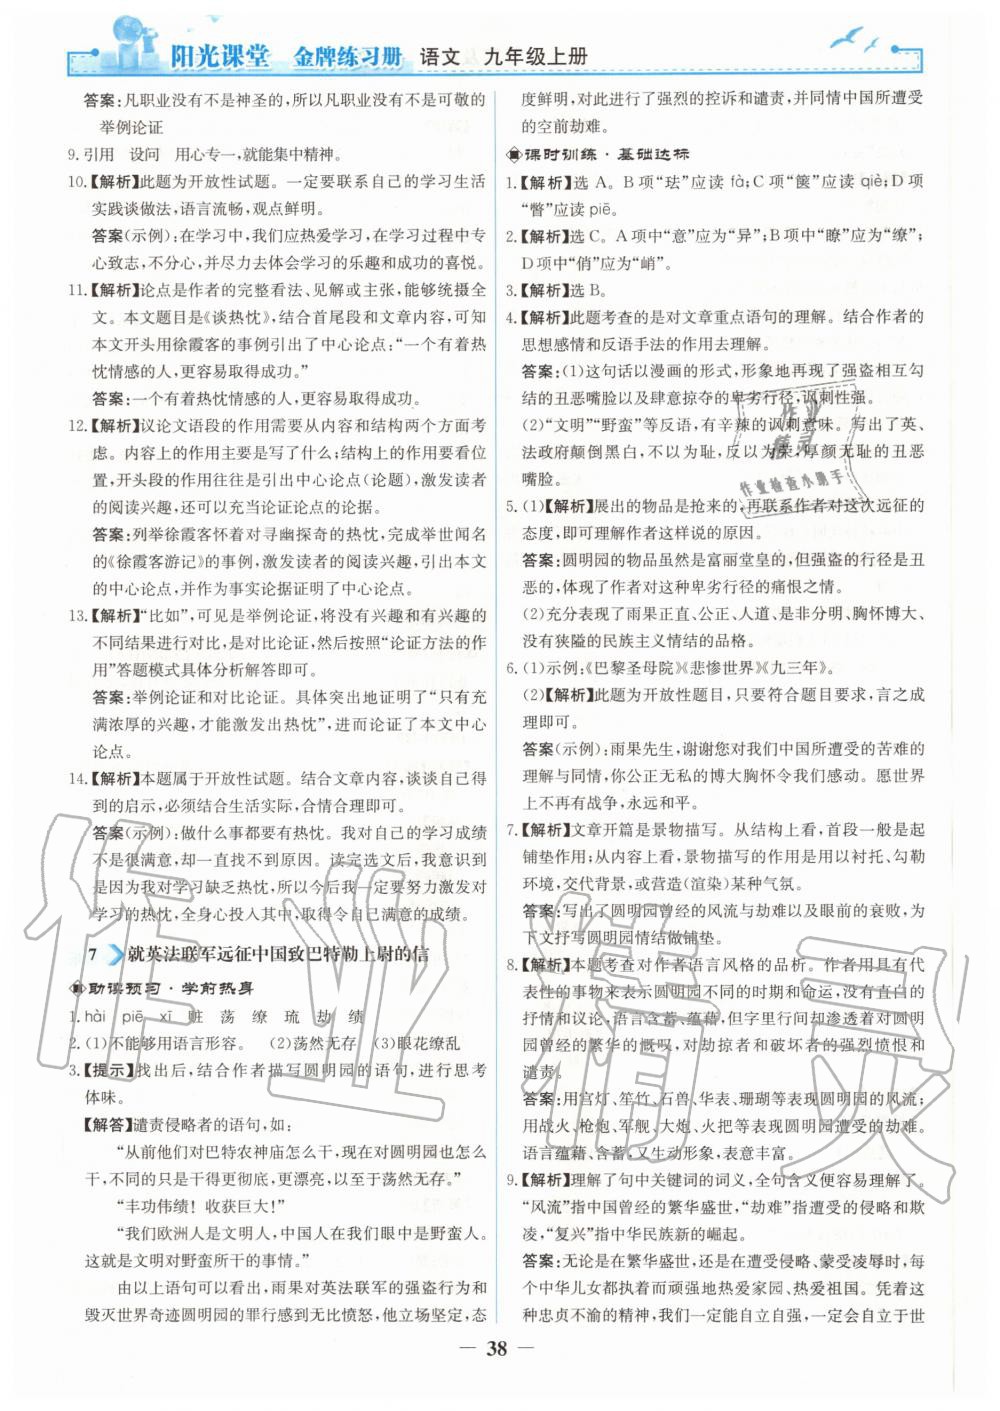 阳光课堂 金牌练习册 语文 九年级上册
答案:凡职业没有不是神圣的,所以凡职业没有不是可敬的
举例论证
9. 引用 设问 用心专一,就能集中精神。
10.【解析】此题为开放性试题。一定要联系自己的学习生活
实践谈做法,语言流畅,观点鲜明。
答案(示例):在学习中,我们应热爱学习,在学习过程中专
心致志,不分心,并尽力去体会学习的乐趣和成功的喜悦。
11.【解析】论点是作者的完整看法、见解或主张,能够统摄全
文。本文题目是《谈热忱》,结合首尾段和文章内容,可知
本文开头用徐霞客的事例引出了中心论点:“一个有着热
忱情感的人,更容易取得成功。”
答案:一个有着热忱情感的人,更容易取得成功。
12.【解析】议论文语段的作用需要从内容和结构两个方面考
虑。内容上的作用主要是写了什么;结构上的作用要看位
置,开头段的作用往往是引出中心论点(论题),激发读者
的阅读兴趣,还可以充当论证论点的论据。
答案:列举徐霞客怀着对寻幽探奇的热忱,完成举世闻名
的《徐霞客游记》的事例,激发读者的阅读兴趣,引出本文
的中心论点,并作为事实论据证明了中心论点。
13.【解析】“比如”,可见是举例论证,将没有兴趣和有兴趣的
不同结果进行对比,是对比论证,然后按照“论证方法的作
用”答题模式具体分析解答即可。
答案:举例论证和对比论证。具体突出地证明了“只有充
满浓厚的兴趣,才能激发出热忱”,进而论证了本文中心
论点。
14.【解析】本题属于开放性试题。结合文章内容,谈谈自己得
到的启示,必须结合生活实际,合情合理即可。
答案(示例):做什么事都要有热忱。我对自己的学习成绩
不是很满意,却一直找不到原因。读完选文后,我意识到
是因为我对学习缺乏热忱,所以今后我一定要努力激发对
学习的热忱,全身心投入其中,取得令自己满意的成绩。
7 就英法联军远征中国致巴特勒上尉的信
助读预习·学前热身
1. hài piē xī 赃 荡 缭 琉 劫 绩
2. (1)不能够用语言形容。 (2)荡然无存 (3)眼花缭乱
3.【提示】找出后,结合作者描写圆明园的语句,进行思考
体味。
【解答】谴责侵略者的语句,如:
“从前他们对巴特农神庙怎么干,现在对圆明园也怎么干,
不同的只是干得更彻底,更漂亮,以至于荡然无存。”
“丰功伟绩!收获巨大!”
“我们欧洲人是文明人,中国人在我们眼中是野蛮人。
这就是文明对野蛮所干的事情。”
由以上语句可以看出,雨果对英法联军的强盗行为和
毁灭世界奇迹圆明园的罪行感到无比愤怒,他立场坚定,态
度鲜明,对此进行了强烈的控诉和谴责,并同情中国所遭受
的空前劫难。
课时训练·基础达标
1.【解析】选 A。B 项“珐”应读 fà;C 项“箧”应读 qiè;D 项
“瞥”应读 piē。
2.【解析】选 C。A 项中“意”应为“异”;B 项中“瞭”应为“缭”;
D 项中“俏”应为“峭”。
3.【解析】选 B。
4.【解析】此题考查的是对文章重点语句的理解。结合作者的
思想感情和反语手法的作用去理解。
答案:(1)这句话以漫画的形式,形象地再现了强盗相互勾
结的丑恶嘴脸以及肆意掠夺的卑劣行径,讽刺性强。
(2)“文明”“野蛮”等反语,有辛辣的讽刺意味。写出了英、
法政府颠倒黑白,不以为耻,反以为荣,厚颜无耻的丑恶
嘴脸。
5. (1)【解析】展出的物品是抢来的,再联系作者对这次远征的
态度,即可理解作者这样说的原因。
答案:圆明园的物品虽然是富丽堂皇的,但强盗的行径是丑
恶的,体现了作者对这种卑劣行径的痛恨之情。
(2)充分表现了雨果正直、公正、人道、是非分明、胸怀博大、
没有狭隘的民族主义情结的品格。
6. (1)示例:《巴黎圣母院》《悲惨世界》《九三年》。
(2)【解析】此题为开放性题目,只要符合题目要求,言之成
理即可。
答案(示例):雨果先生,谢谢您对我们中国所遭受的苦难的
理解与同情,你公正无私的博大胸怀令我们感动。愿世界
上不再有战争,永远和平。
7.【解析】文章开篇是景物描写。从结构上看,首段一般是起
铺垫作用;从内容上看,景物描写的作用是用以衬托、勾勒
环境,交代背景,或营造(渲染)某种气氛。
答案:写出了圆明园曾经的风流与劫难以及眼前的衰败,为
下文抒写圆明园情结做铺垫。
8.【解析】本题考查对作者语言风格的品析。作者用具有代
表性的事物来表示圆明园不同的时期和命运,没有直白的
抒情和议论,语言含蓄、蕴藉,但字里行间却渗透着对圆明
园曾经的繁华的慨叹,对劫掠者和破坏者的强烈愤恨和
谴责。
答案:用宫灯、笙竹、石兽、华表、珊瑚等表现圆明园的风流;
用战火、枪炮、军舰、大炮、火把等表现圆明园遭受的劫难。
语言蕴藉、含蓄,又生动形象,表意丰富。
9.【解析】理解了句中关键词的词义,全句含义便容易理解了。
“风流”指中国曾经的繁华盛世,“劫难”指遭受的侵略和欺
凌,“复兴”指中华民族新的崛起。
答案:无论是在繁华盛世,还是在遭受侵略、蒙受凌辱时,每
个中华儿女都执着而顽强地热爱家园、热爱祖国。凭着这
种忠贞不渝的精神,我们一定能自立自强,一定会自立于世
38
作业精灵
作业检查小助手
作业精灵